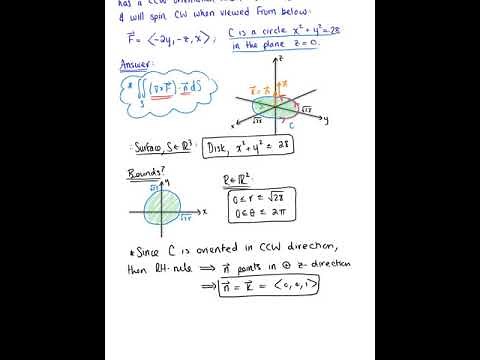 has a CCW orientation
& will spin CW when viewed from below.
F = <-2y, -z, x> , C is a circle x² + y² = 28
in the plane z = 0.
Answer:
* ∬ (∇×F)·n dS
S
z
n = k
n
S
√28
√28
x
y
C
∴ Surface, S ∈ ℝ³: Disk, x² + y² ≤ 28
Bounds?
R ∈ ℝ²:
y
√28
√28
x
0 ≤ r ≤ √28
0 ≤ θ ≤ 2π
* Since C is oriented in CCW direction,
then RH-rule ⟹ n points in ⊕ z-direction
⟹ n = k = <0, 0, 1>